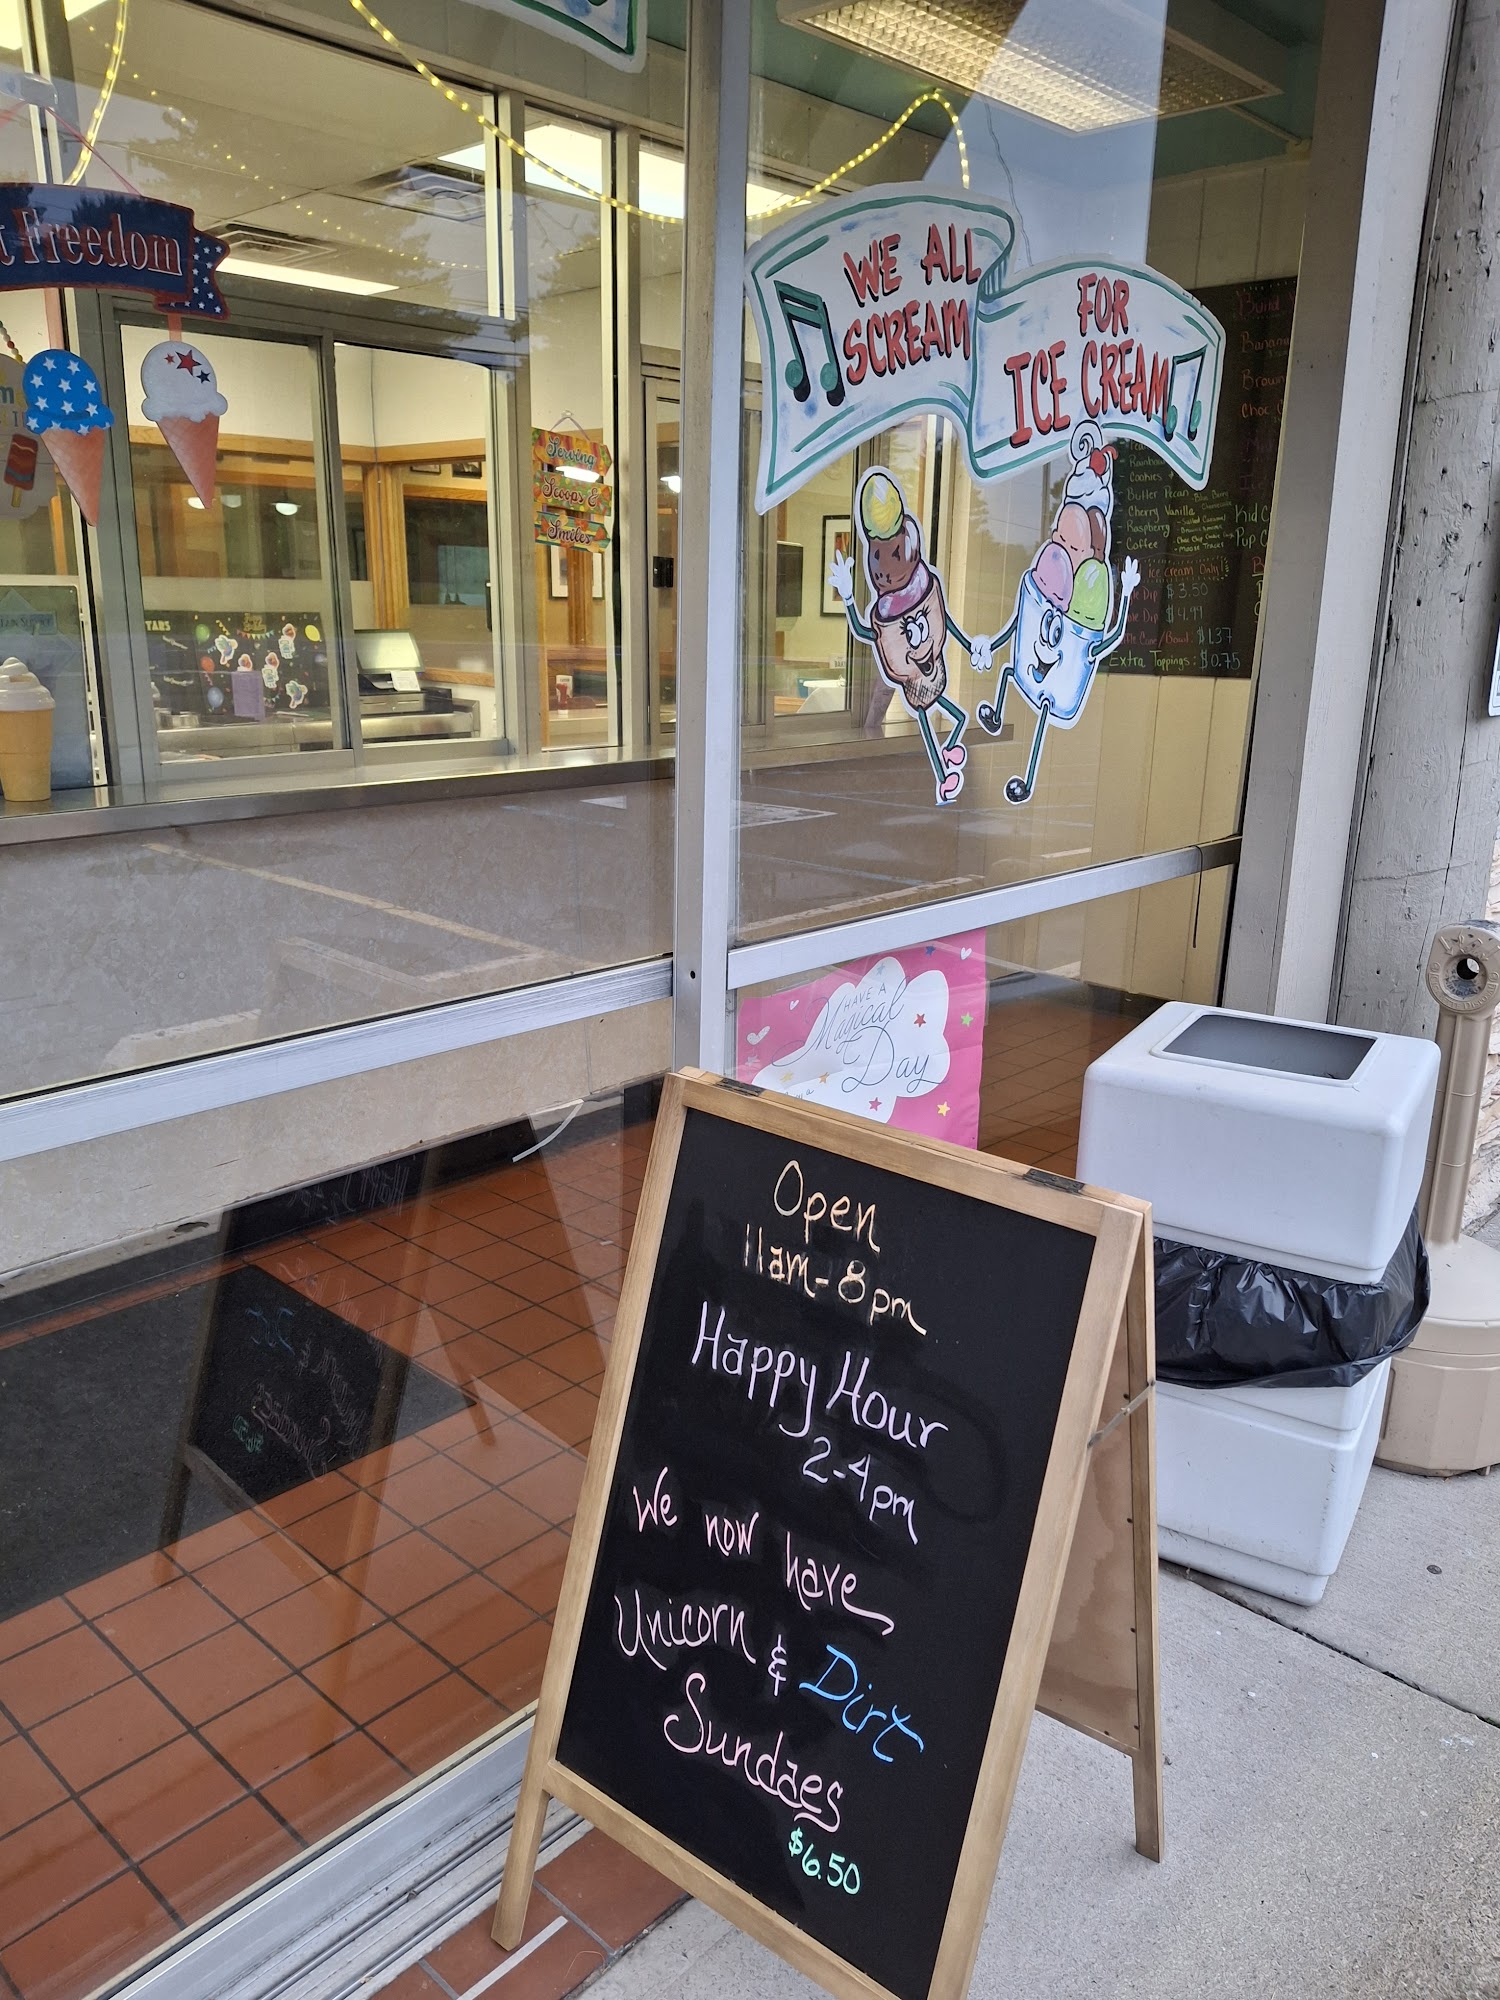 Freedom
WE ALL
SCREAM
FOR
ICE CREAM
Serving
Scoops &
Smiles
Build
Banana
Brown
Choc
Rainbow
Cookies
Butter Pecan
Cherry Vanilla
Raspberry
Coffee
- Moose Tracks
Kid
Pup
ice cream Only!
Dip $3.50
Dip $4.99
Cone/Bowl: $1.37
Extra Toppings: $0.75
HAVE A
Magical
Day
Open
11am-8pm
Happy Hour
2-4pm
We now have
Unicorn & Dirt
Sundaes
$6.50